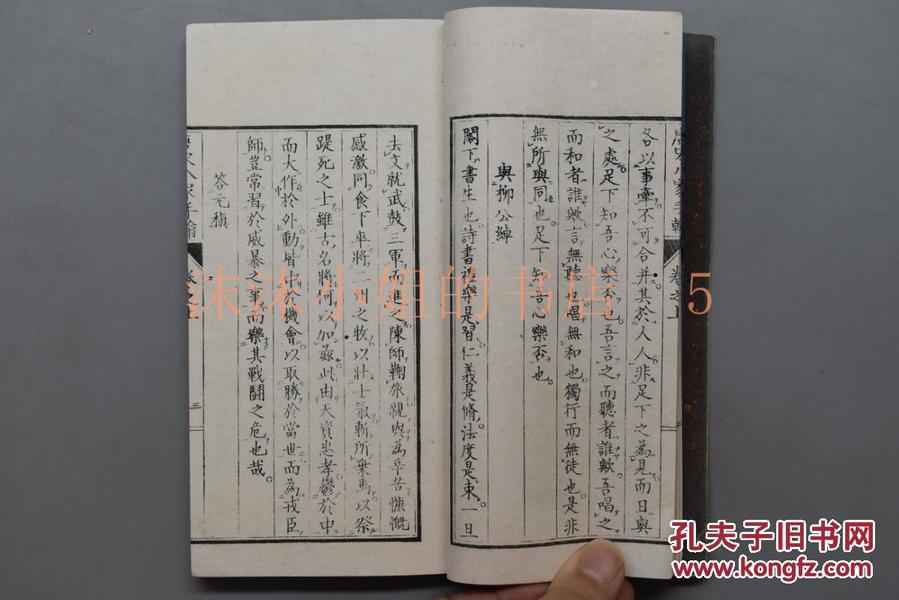 各以事牽不可合并其於人人非足下之為見而日與
之處足下知吾心樂否也吾言之而聽者誰歟吾唱之
而和者誰歟言無聽也唱無和也獨行而無徒也是非
無所與同也足下知吾心樂否也
與柳公綽
閣下書生也詩書禮樂是習仁義是脩法度是束一旦
去文就武鼓三軍而進之陳師鞠旅親與為辛苦慷慨
感激同食下卒將二州之牧以壯士氣斬所乗馬以祭
踶死之士雖古名將何以加兹此由天資忠孝鬱於中
而大作於外動皆中於機會以取勝於當世而為戎臣
師豈常習於威暴之事而樂其戰鬪之危也哉
答元稹
卷之上
三
沫沫小姐的书店 5
孔夫子旧书网
www.kongfz.com